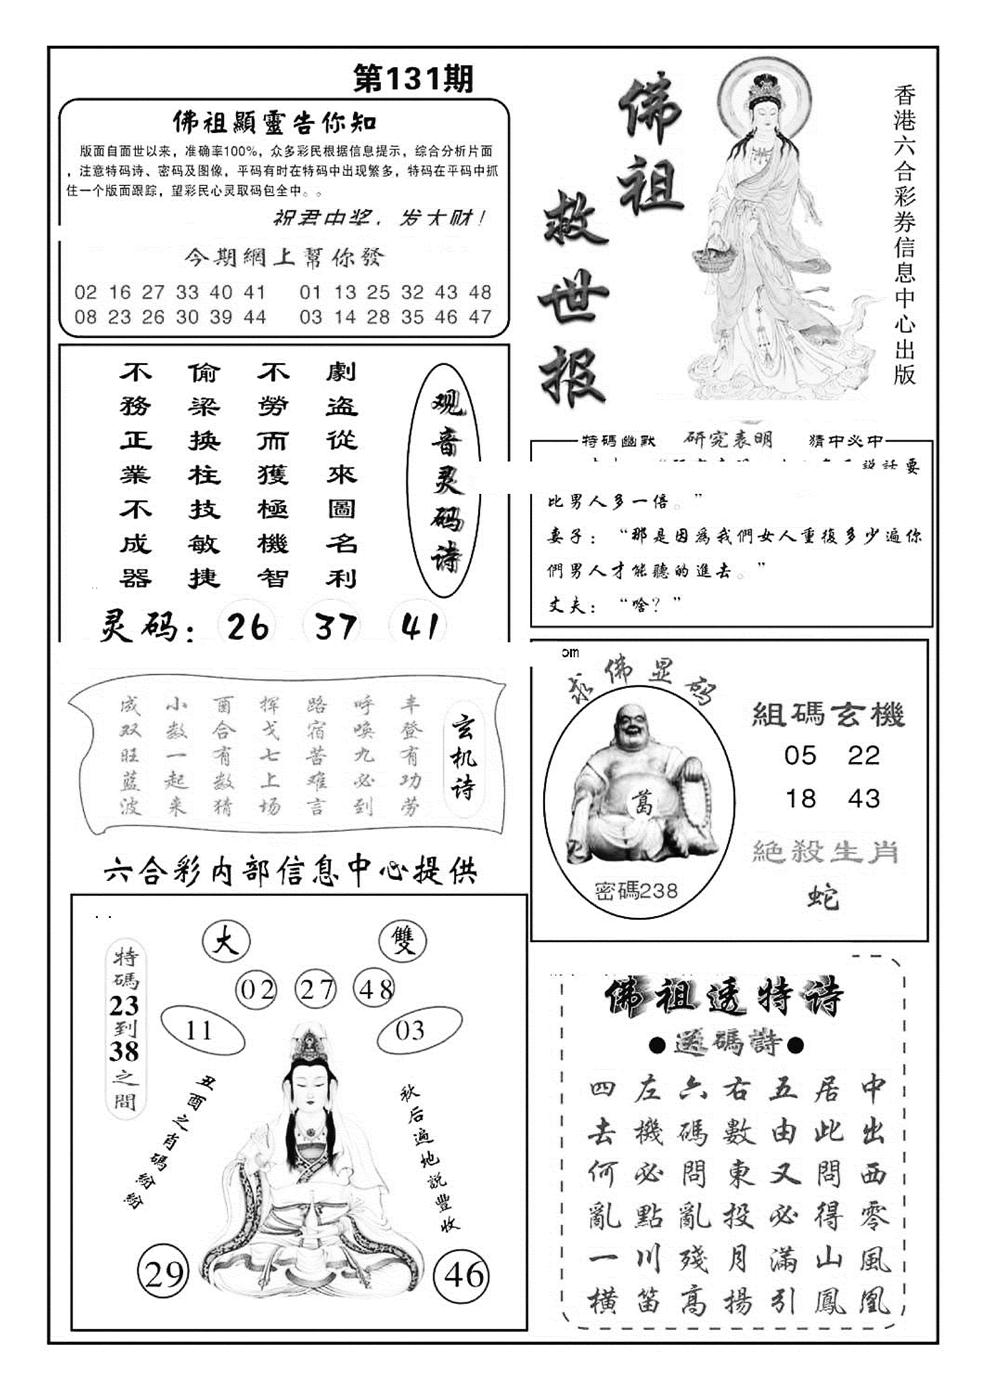 第131期
佛祖顯靈告你知
版面自面世以来，准确率100%，众多彩民根据信息提示，综合分析片面
，注意特码诗、密码及图像，平码有时在特码中出现繁多，特码在平码中抓
住一个版面跟踪，望彩民心灵取码包全中。。
祝君中奖，发大财！
今期網上幫你發
02 16 27 33 40 41 01 13 25 32 43 48
08 23 26 30 39 44 03 14 28 35 46 47
佛祖
救世报
香港六合彩券信息中心出版
观音灵码诗
劇盗從來圖名利
不勞而獲極機智
偷梁换柱技敏捷
不務正業不成器
灵码：26 37 41
特碼幽默 研究表明 猜中必中
説話要
比男人多一倍。”
妻子：“那是因爲我們女人重復多少遍你
們男人才能聽的進去。”
丈夫：“啥？”
om
玄机诗
丰登有功劳
呼唤九必到
路宿苦难言
挥戈七上场
酉合有数猜
小数一起来
成双旺蓝波
求佛显码
萬
密碼238
組碼玄機
05 22
18 43
絕殺生肖
蛇
六合彩内部信息中心提供
大 雙
02 27 48
11 03
特碼23到38之間
丑酉之肖碼紛紛
秋后遍地説豐收
29 46
佛祖透特诗
●送碼詩●
中出西零風凰
居此問得山鳳
五由又必滿引
右數東投月揚
六碼問亂殘高
左機必點川笛
四去何亂一横